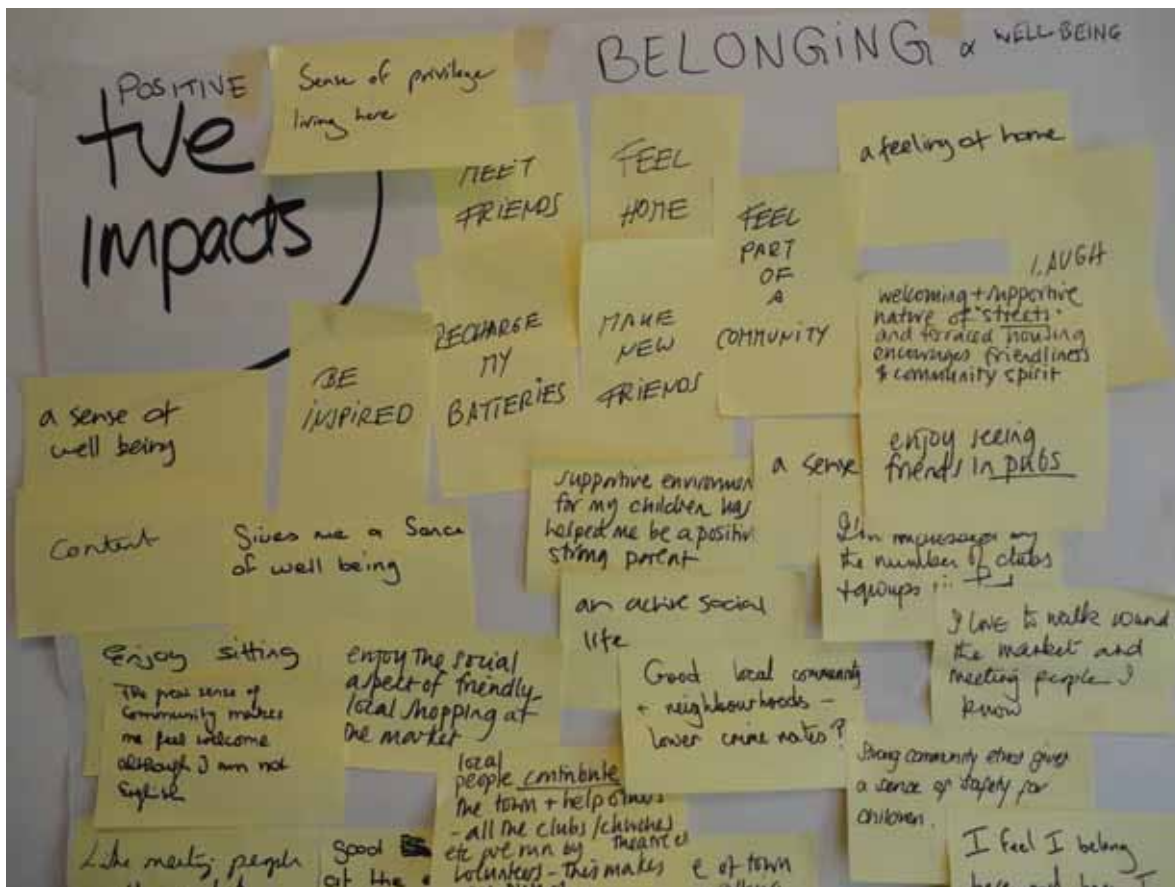 POSITIVE
+ve
Impacts
BELONGING & WELL BEING
Sense of privilege
living here
MEET
FRIENDS
FEEL
HOME
a feeling of home
FEEL
PART
OF
A
COMMUNITY
LAUGH
welcoming + supportive
nature of "streets"
and terraced housing
encourages friendliness
& community spirit
BE
INSPIRED
RECHARGE
MY
BATTERIES
MAKE
NEW
FRIENDS
a sense of
well being
enjoy seeing
friends in pubs
a sense
supportive environmen
for my children has
helped me be a positiv
strong parent
Content
Gives me a
of well being
the number of clubs
+ groups
an active social
life
I love to walk round
the market and
meeting people I
know
Enjoy sitting
The great sense of
Community makes
me feel welcome
although I am not
English
enjoy the social
aspect of friendly
local shopping at
the market
Good local community
+ neighbourhoods -
lower crime rates?
Strong community ethos gives
a sense of safety for
children.
local
people contribute
the town + help others
- all the clubs/churches
etc are run by theatres
volunteers - This makes
Like meeting people
good
at the
e of town
I feel I belong